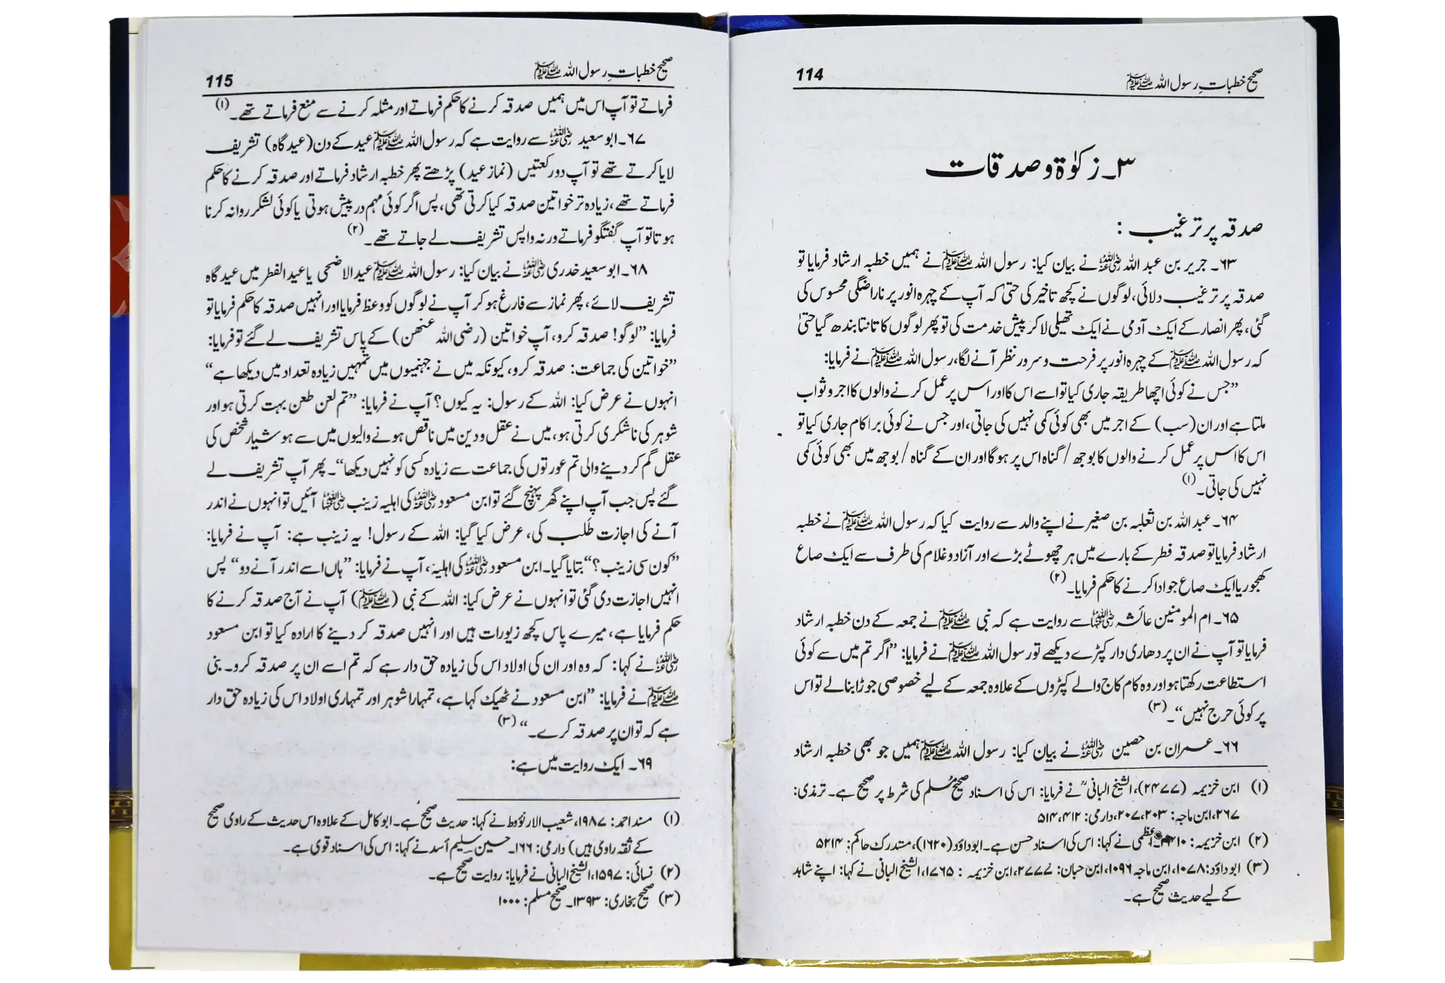 صحیح خطباتِ رسول اللہ ﷺ
114
۳۔ زکوٰۃ و صدقات
صدقہ پر ترغیب :
۶۳۔ جریر بن عبد اللہ رضی اللہ عنہ نے بیان کیا: رسول اللہ ﷺ نے ہمیں خطبہ ارشاد فرمایا تو
صدقہ پر ترغیب دلائی، لوگوں نے کچھ تاخیر کی حتیٰ کہ آپ کے چہرہ انور پر ناراضگی محسوس کی
گئی، پھر انصار کے ایک آدمی نے ایک تھیلی لا کر پیش خدمت کی تو پھر لوگوں کا تانتا بندھ گیا حتیٰ
کہ رسول اللہ ﷺ کے چہرہ انور پر فرحت و سرور نظر آنے لگا، رسول اللہ ﷺ نے فرمایا:
”جس نے کوئی اچھا طریقہ جاری کیا تو اسے اس کا اور اس پر عمل کرنے والوں کا اجر و ثواب
ملتا ہے اور ان (سب) کے اجر میں بھی کوئی کمی نہیں کی جاتی، اور جس نے کوئی برا کام جاری کیا تو
اس کا اس پر عمل کرنے والوں کا بوجھ / گناہ اس پر ہو گا اور ان کے گناہ / بوجھ میں بھی کوئی کمی
نہیں کی جاتی۔ (۱)
۶۴۔ عبد اللہ بن ثعلبہ بن صغیر نے اپنے والد سے روایت کیا کہ رسول اللہ ﷺ نے خطبہ
ارشاد فرمایا تو صدقہ فطر کے بارے میں ہر چھوٹے بڑے اور آزاد و غلام کی طرف سے ایک صاع
کھجور یا ایک صاع جو ادا کرنے کا حکم فرمایا۔ (۲)
۶۵۔ ام المومنین عائشہ رضی اللہ عنہا سے روایت ہے کہ نبی ﷺ نے جمعہ کے دن خطبہ ارشاد
فرمایا تو آپ نے ان پر دھاری دار کپڑے دیکھے تو رسول اللہ ﷺ نے فرمایا: ”اگر تم میں سے کوئی
استطاعت رکھتا ہو اور وہ کام کاج والے کپڑوں کے علاوہ جمعہ کے لیے خصوصی جوڑا بنا لے تو اس
پر کوئی حرج نہیں“۔ (۳)
۶۶۔ عمران بن حصین رضی اللہ عنہ نے بیان کیا: رسول اللہ ﷺ ہمیں جو بھی خطبہ ارشاد
(۱) ابن خزیمہ (۲۴۷۷)، الشیخ البانیؒ نے فرمایا: اس کی اسناد صحیح مسلم کی شرط پر صحیح ہے۔ ترمذی:
۲۶۷، ابن ماجہ: ۲۰۳، ۲۰۷، دارمی: ۵۱۲، ۵۱۴
(۲) ابن خزیمہ: ۲۴۱۰۔ اعظمی نے کہا: اس کی اسناد حسن ہے۔ ابو داؤد (۱۶۲۰)، مستدرک حاکم: ۵۲۱۴
(۳) ابو داؤد: ۱۰۷۸، ابن ماجہ ۱۰۹۶، ابن حبان: ۲۷۷۷، ابن خزیمہ : ۱۷۶۵، الشیخ البانی نے کہا: اپنے شاہد
کے لیے حدیث صحیح ہے۔
صحیح خطباتِ رسول اللہ ﷺ
115
فرماتے تو آپ اس میں ہمیں صدقہ کرنے کا حکم فرماتے اور مثلہ کرنے سے منع فرماتے تھے۔ (۱)
۶۷۔ ابو سعید رضی اللہ عنہ سے روایت ہے کہ رسول اللہ ﷺ عید کے دن (عید گاہ) تشریف
لایا کرتے تھے تو آپ دو رکعتیں (نماز عید) پڑھتے پھر خطبہ ارشاد فرماتے اور صدقہ کرنے کا حکم
فرماتے تھے، زیادہ تر خواتین صدقہ کیا کرتی تھی، پس اگر کوئی مہم در پیش ہوتی یا کوئی لشکر روانہ کرنا
ہوتا تو آپ گفتگو فرماتے ورنہ واپس تشریف لے جاتے تھے۔ (۲)
۶۸۔ ابو سعید خدری رضی اللہ عنہ نے بیان کیا: رسول اللہ ﷺ عید الاضحی یا عید الفطر میں عید گاہ
تشریف لائے، پھر نماز سے فارغ ہو کر آپ نے لوگوں کو وعظ فرمایا اور انہیں صدقہ کا حکم فرمایا تو
فرمایا: ”لوگو! صدقہ کرو، آپ خواتین (رضی اللہ عنھن) کے پاس تشریف لے گئے تو فرمایا:
”خواتین کی جماعت: صدقہ کرو، کیونکہ میں نے جہنمیوں میں تمہیں زیادہ تعداد میں دیکھا ہے“
انہوں نے عرض کیا: اللہ کے رسول: یہ کیوں؟ آپ نے فرمایا: ”تم لعن طعن بہت کرتی ہو اور
شوہر کی ناشکری کرتی ہو، میں نے عقل و دین میں ناقص ہونے والیوں میں سے ہوشیار شخص کی
عقل گم کر دینے والی تم عورتوں کی جماعت سے زیادہ کسی کو نہیں دیکھا“۔ پھر آپ تشریف لے
گئے پس جب آپ اپنے گھر پہنچ گئے تو ابن مسعود رضی اللہ عنہ کی اہلیہ زینب رضی اللہ عنہا آئیں تو انہوں نے اندر
آنے کی اجازت طلب کی، عرض کیا گیا: اللہ کے رسول! یہ زینب ہے: آپ نے فرمایا:
”کون سی زینب؟“ بتایا گیا۔ ابن مسعود رضی اللہ عنہ کی اہلیہ، آپ نے فرمایا: ”ہاں اسے اندر آنے دو“ پس
انہیں اجازت دی گئی تو انہوں نے عرض کیا: اللہ کے نبی (ﷺ) آپ نے آج صدقہ کرنے کا
حکم فرمایا ہے، میرے پاس کچھ زیورات ہیں اور انہیں صدقہ کر دینے کا ارادہ کیا تو ابن مسعود
رضی اللہ عنہ نے کہا: کہ وہ اور ان کی اولاد اس کی زیادہ حق دار ہے کہ تم اسے ان پر صدقہ کرو۔ نبی
ﷺ نے فرمایا: ”ابن مسعود نے ٹھیک کہا ہے، تمہارا شوہر اور تمہاری اولاد اس کی زیادہ حق دار
ہے کہ تو ان پر صدقہ کرے۔“ (۳)
۶۹۔ ایک روایت میں ہے:
(۱) مسند احمد: ۱۹۸۷، شعیب الارنؤوط نے کہا: حدیث صحیح ہے۔ ابو کامل کے علاوہ اس حدیث کے راوی صحیح
کے ثقہ راوی ہیں) دارمی: ۱۶۶۔ حسین سلیم اسد نے کہا: اس کی اسناد قوی ہے۔
(۲) نسائی: ۱۵۹۷، الشیخ البانی نے فرمایا: روایت صحیح ہے۔
(۳) صحیح بخاری: ۱۳۹۳۔ صحیح مسلم: ۱۰۰۰